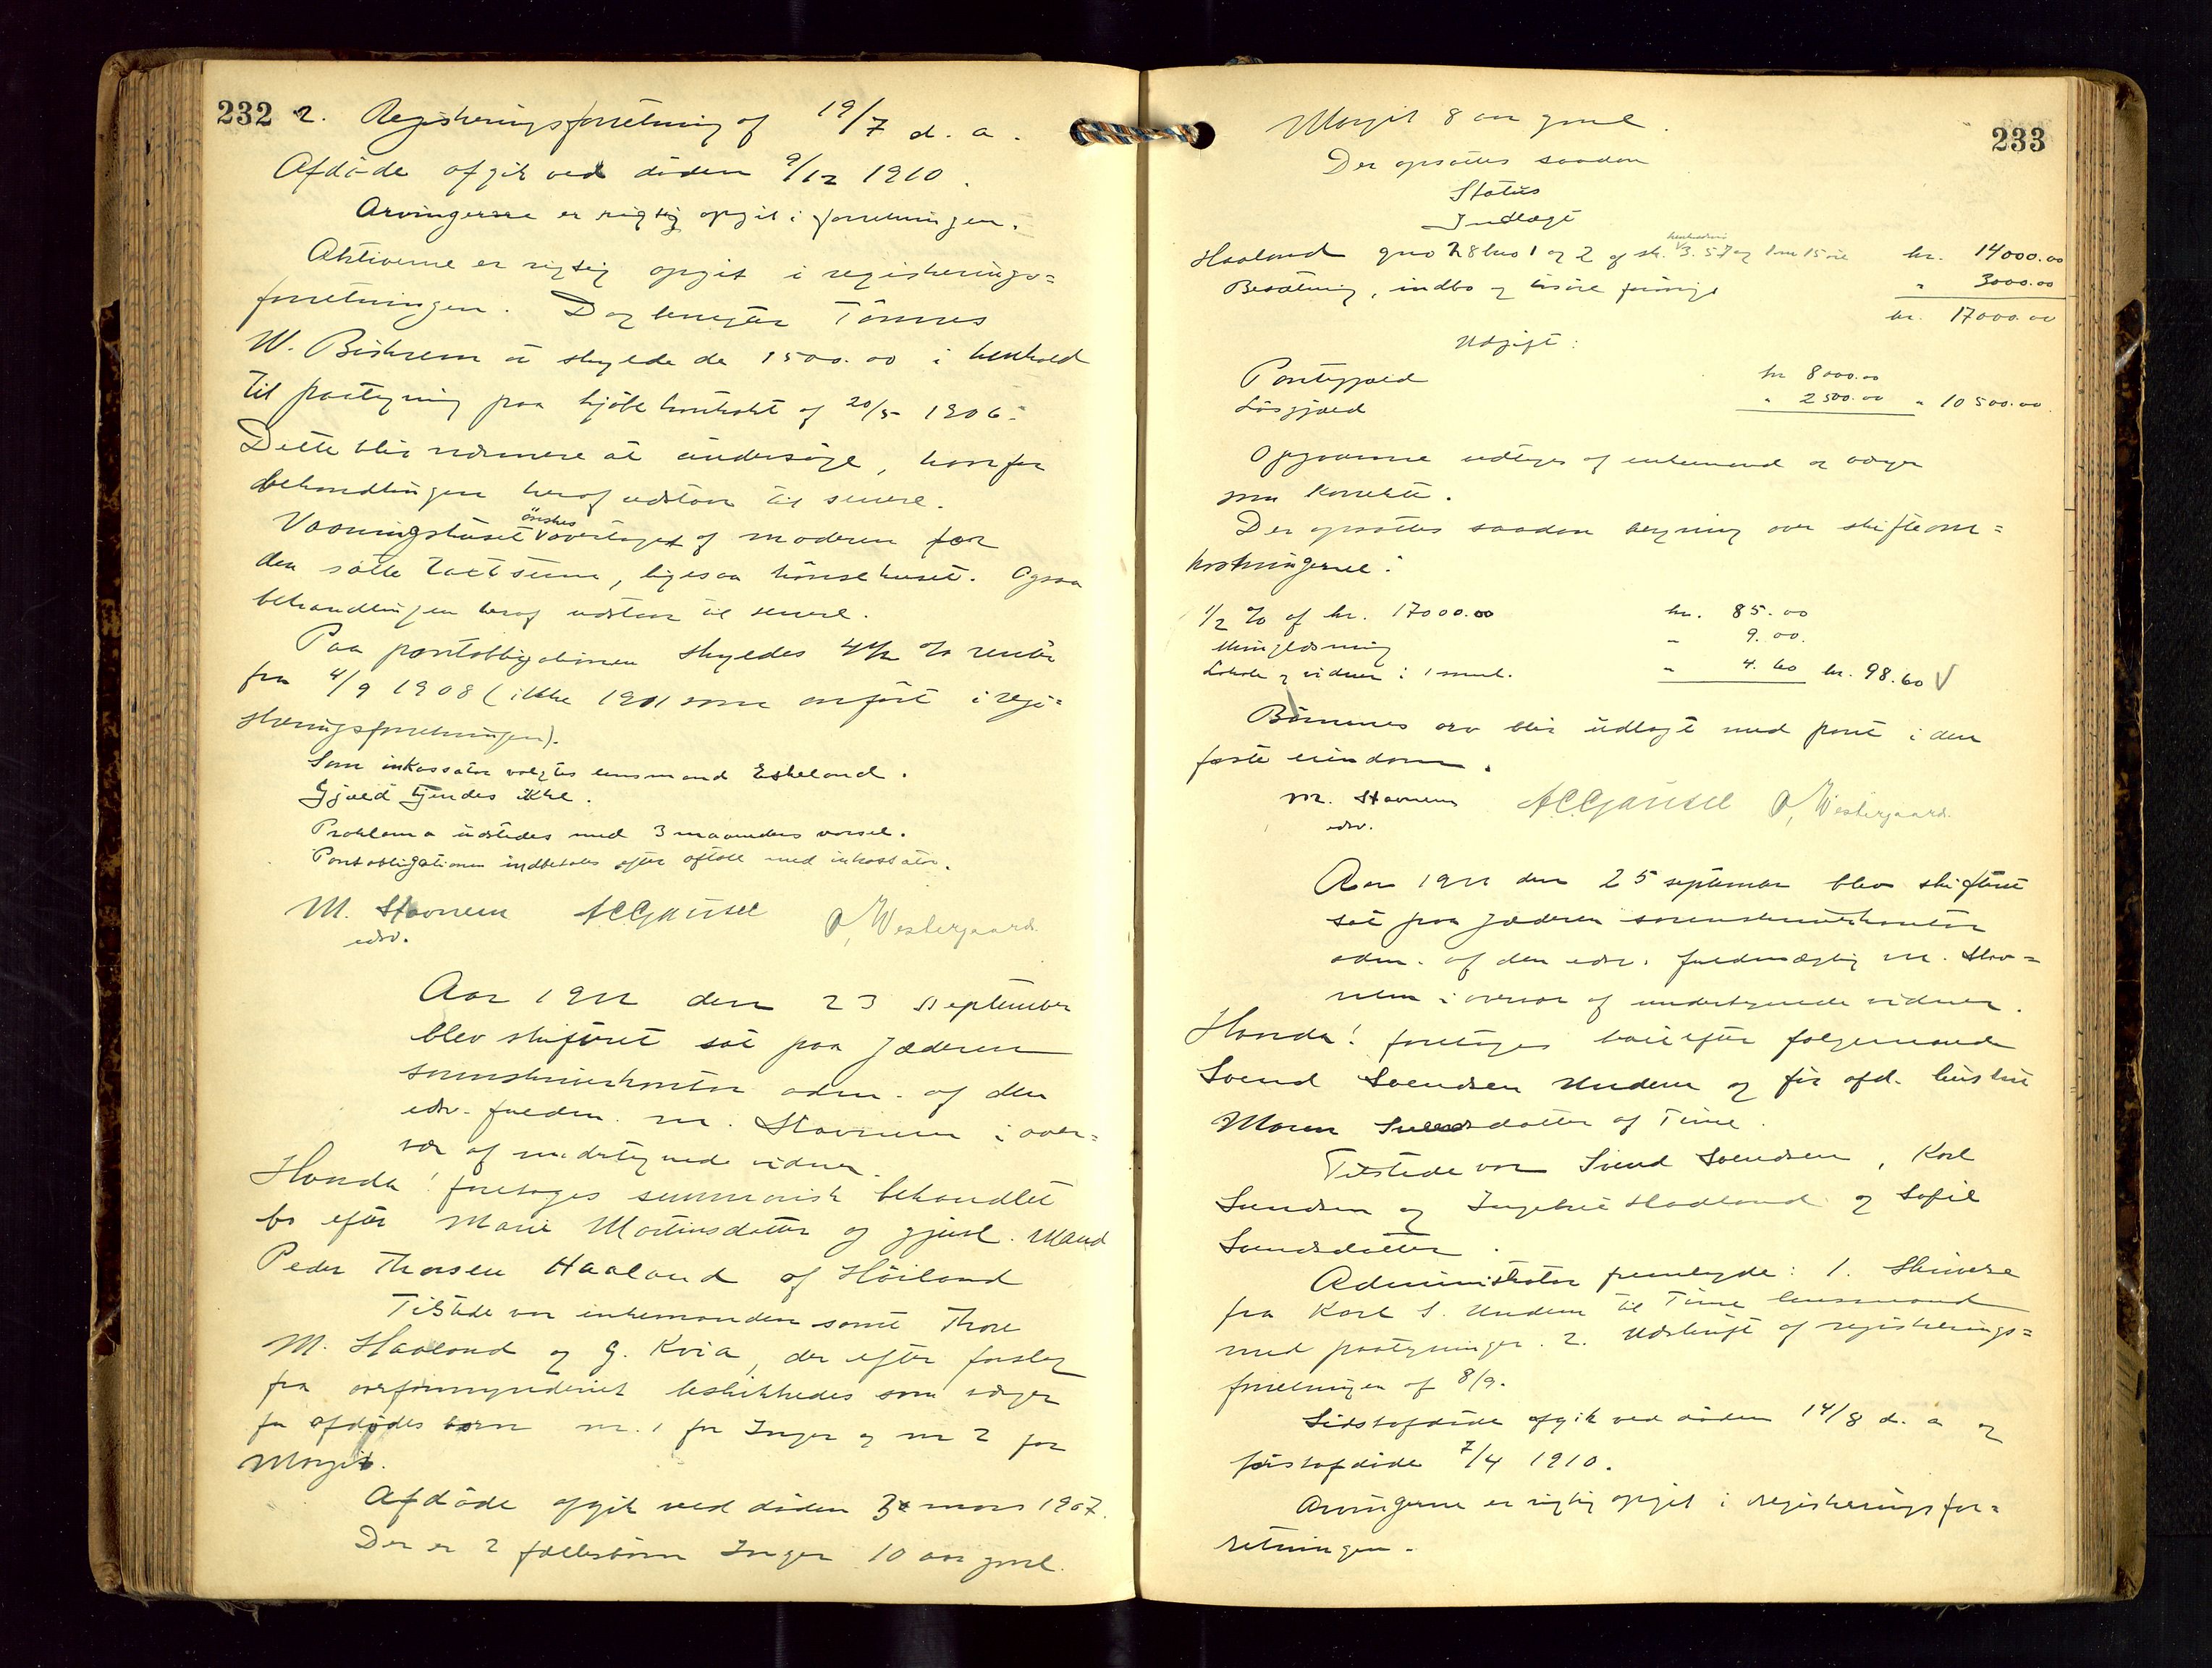 232 2. Registreringsforretning af 19/7 d. a.
Afdøde afgik ved døden 9/12 1910.
Arvingerne er rigtig opgit i forretningen.
Aktiverne er rigtig opgit i registrerings=
forretningen. Dog benegter Tønnes
W. Birkrem at skylde de 1500.00 i henhold
til paategning paa kjøbekontrakt af 20/5 1906.
Dette blir nærmere at undersøge, hvorfor
behandlingen herof utstaar til senere.
Vaaningshuset ønskes overtaget af moderen for
den satte taxtsum, ligesaa hønsehuset. Ogsaa
behandlingen herof utstaar til senere.
Paa pantobligationen skyldes 4½ % rente
fra 4/9 1908 (ikke 1901 som anført i regi=
streringsforretningen).
Som inkassator valgtes lensmand Eskeland.
Gjæld kjendes ikke.
Proklama udstedes med 3 maaneders varsel.
Pantobligationen indbetales efter aftale med inkassator.
M. Stavnem ACGausel O. Westergaard.
edsv.
Aar 1911 den 23 september
blev skifteret sat paa Jæderen
sorenskriverkontor adm. af den
edsv. fuldm. M. Stavnem i over=
vær af undertegnede vidner.
Hvorda! foretoges summarisk behandlet
bo efter Marie Martinsdatter og gjenl. mand
Peder Thorsen Haaland af Høiland
Tilstede var enkemanden samt Thore
M. Haaland og G. Kvia, der efter forslag
fra overformynderiet beskikkedes som værger
for afdødes børn nr. 1 for Inger og nr 2 for
Margit.
Afdøde afgik ved døden 3 mars 1907.
Der er 2 fællesbørn Inger 10 aar gml.
233
Margit 8 aar gml.
Der opsattes saadan
Status
Indtægt
Haaland gno 28 bno 1 og 2 af sk. 3.57 og 1 m 15 øre kr. 14000.00
Besætning, indbo og løsøre forøvrigt " 3000.00
kr. 17000.00
Udgift:
Pantegjæld kr 8000.00
Løsgjæld " 2500.00 " 10500.00
Opgaverne vedtages af enkemand og værger
som korrekte.
Der opsattes saadan beregning over skifteom=
kostningerne:
1/2 % af kr. 17000.00 kr. 85.00
Kungjøring " 9.00.
Lokale og vidner i 1 saml. " 4.60 kr. 98.60 V
Børnenes arv blir udlagt med pant i den
faste eiendom.
M. Stavnem ACGausel O. Westergaard.
edsv.
Aar 1911 den 25 september blev skifteret
sat paa Jæderen sorenskriverkontor
adm. af den edsv. fuldmægtig M. Stav=
nem i overvær af undertegnede vidner.
Hvorda! foretoges boet efter følgemand
Svend Svendsen Undem og før afd. hustru
Maren Svendsdatter af Time.
Tilstede var Svend Svendsen, Karl
Svendsen og Ingebret Hadland og Sofie
Svendsdatter.
Administrator fremlagde: 1. Skrivelse
fra Karl S. Undem til Time lensmand
med paategninger. 2. Udskrift af registrerings=
forretningen af 8/9.
Sidstafdøde afgik ved døden 14/8 d. a og
førstafdøde 7/4 1910.
Arvingerne er rigtig opgit i registreringsfor=
retningen.